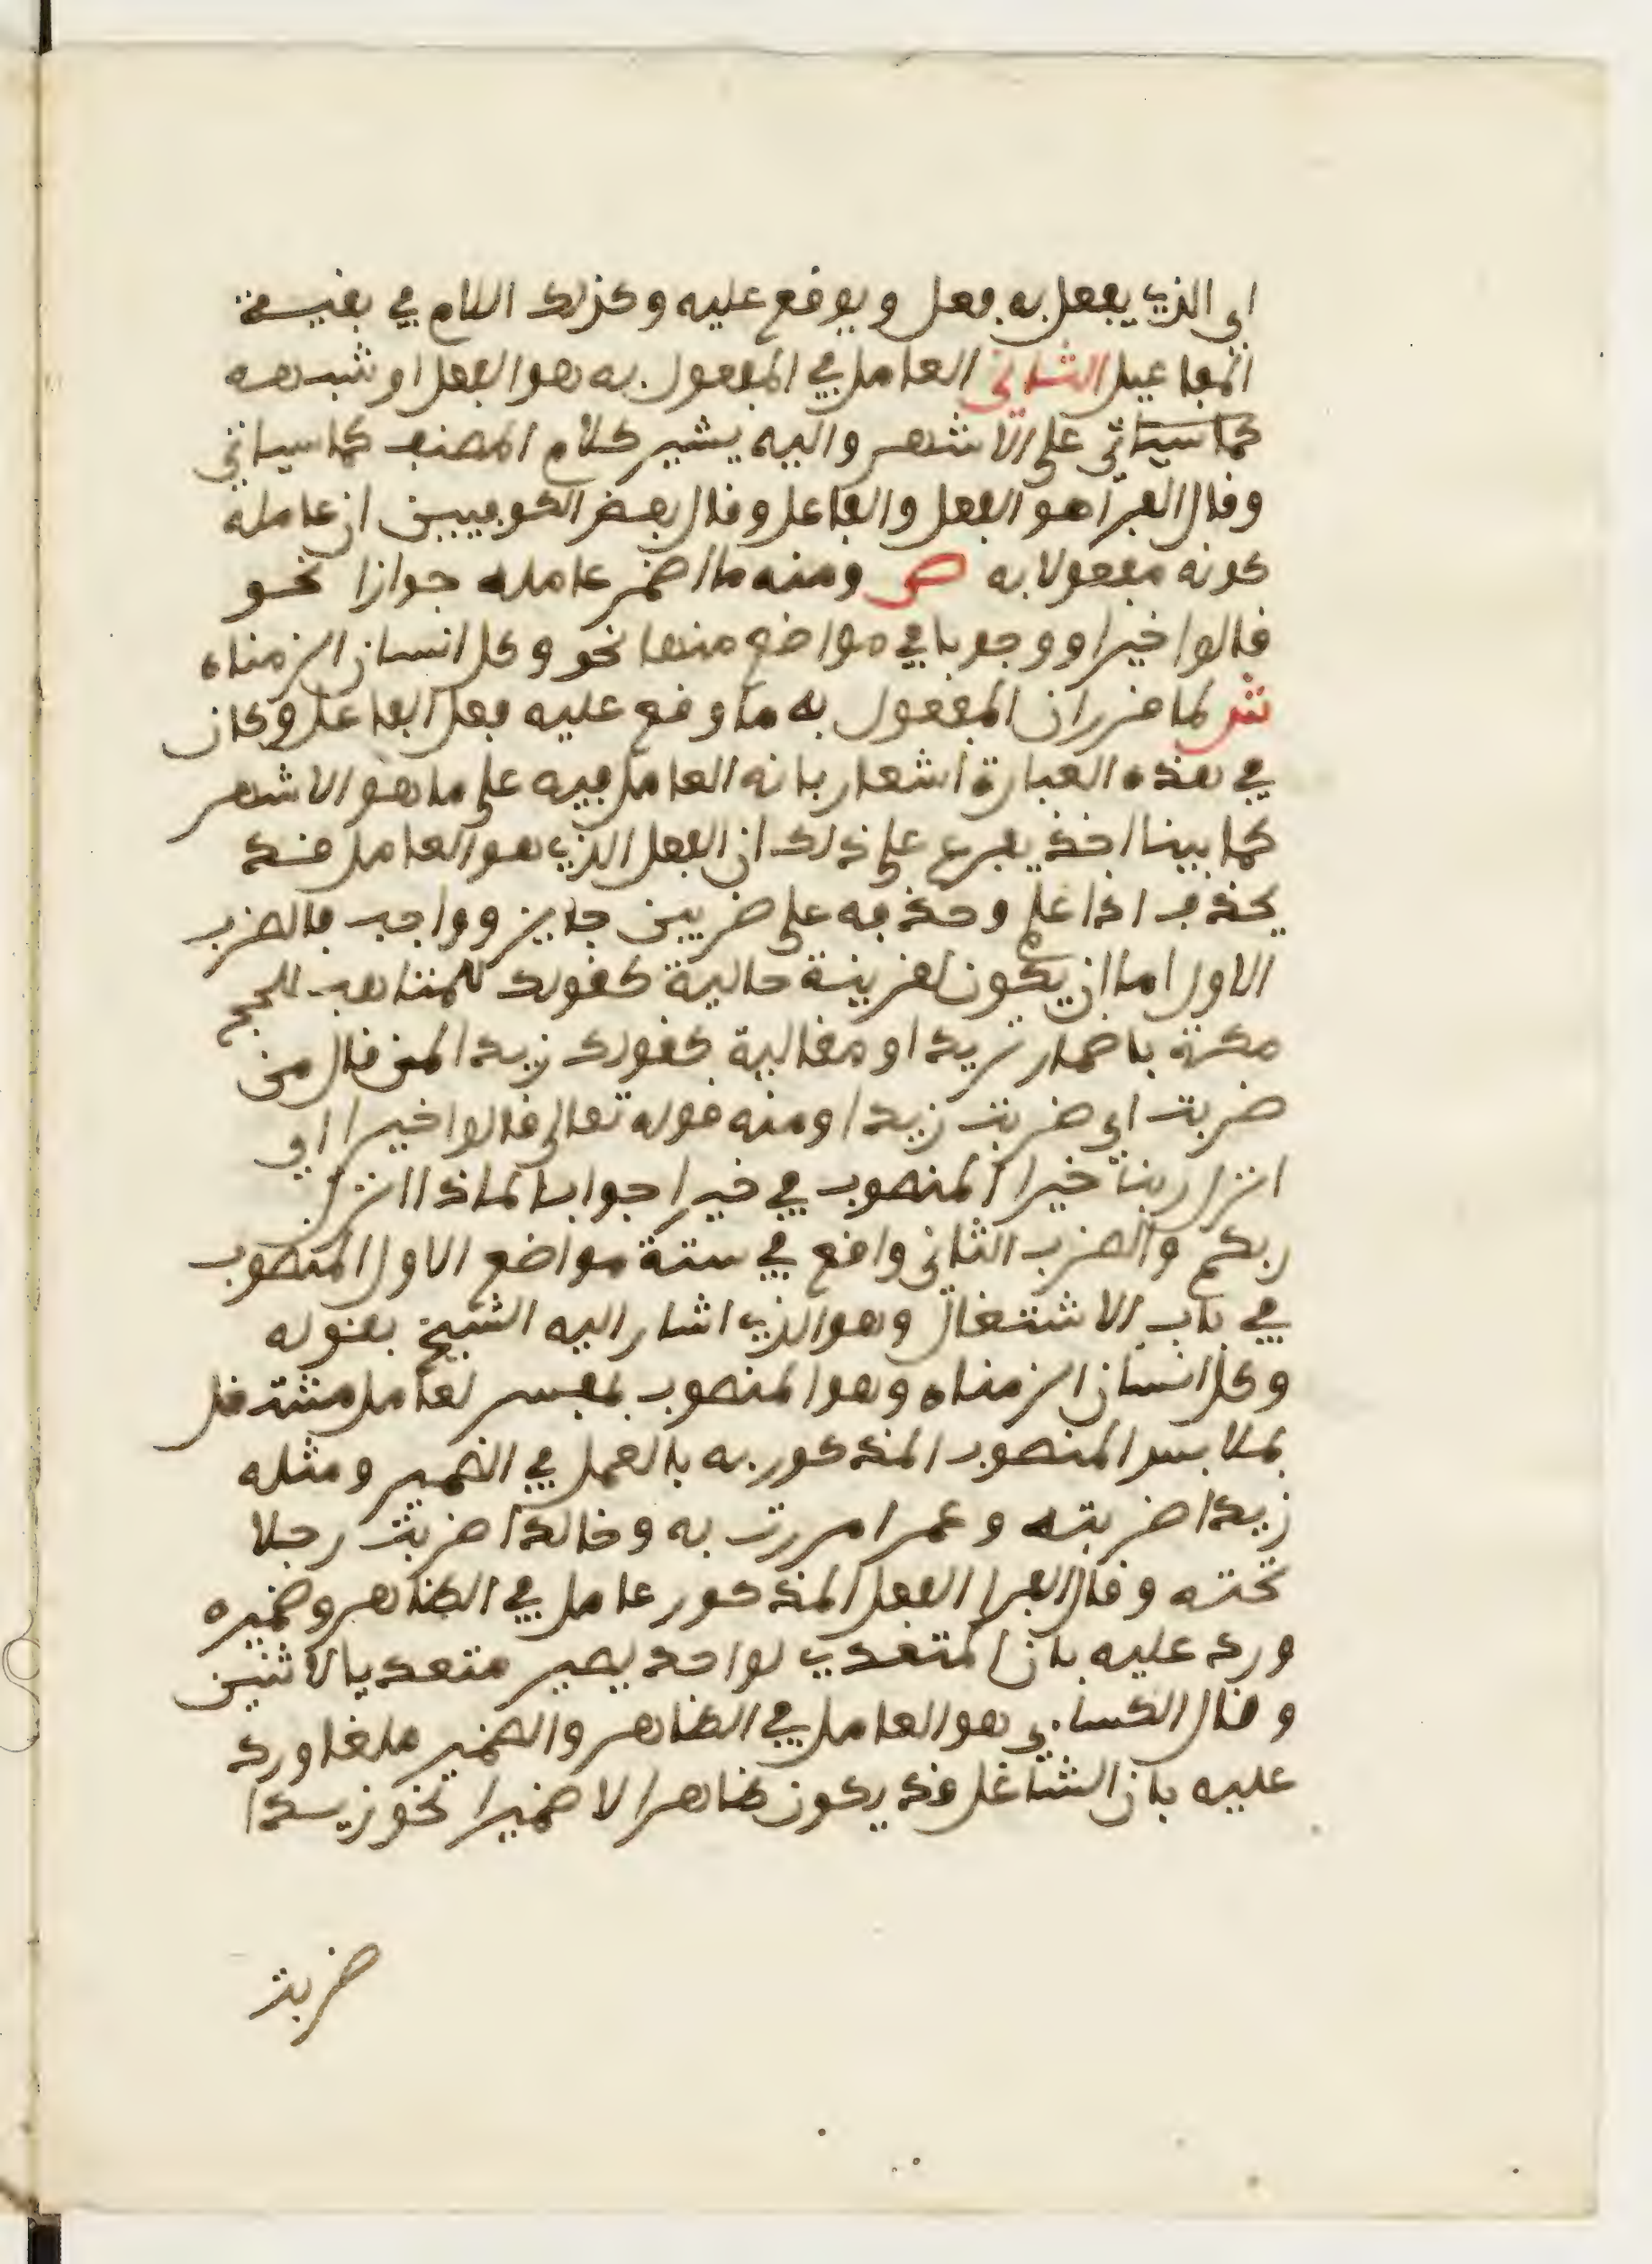 اي الذي يفعل به فعل ويوقع عليه وكذلك اللام في بقية
المفاعيل الثاني العامل في المفعول به هو الفعل او شبهه
كما سياتي على الاشهر واليه يشير كلام المصنف كما سياتي
وقال الفرا هو الفعل والفاعل وقال بعض الكوفيين ان عامله
كونه مفعولا به ص ومنه ما اضمر عامله جوازا نحو
قالوا خيرا ووجوبا في مواضع منها نحو وكل انسان الزمناه
ش لما قرر ان المفعول به ما وقع عليه فعل الفاعل وكان
في هذه العبارة اشعار بانه العامل فيه على ما هو الاشهر
كما بينا اخذ يفرع على ذلك ان الفعل الذي هو العامل قد
يحذف اذا علم وحذفه على ضربين جايز وواجب فالضرب
الاول اما ان يكون لقرينة حالية كقولك للمتاهب للحج
مكة باضمار تريد او مقالية كقولك زيدا لمن قال من
ضربت اي ضربت زيدا ومنه قوله تعالى قالوا خيرا اي
انزل ربنا خيرا المنصوب في خيرا جوابا لماذا انزل
ربكم والضرب الثاني واقع في ستة مواضع الاول المنصوب
في باب الاشتغال وهو الذي اشار اليه الشيخ بقوله
وكل انسان الزمناه وهو المنصوب بمفسر لعامل مشتغل
بملابس المنصوب المذكور به بالعمل في الضمير ومثله
زيدا ضربته وعمرا مررت به وخالدا ضربت رجلا
تحته وقال الفرا الفعل المذكور عامل في الظاهر وضميره
ورد عليه بان المتعدي لواحد يصير متعديا لاثنين
وقال الكساي هو العامل في الظاهر والضمير ملغا ورد
عليه بان الشاغل قد يكون ظاهرا لا ضميرا نحو زيدا
ضربت